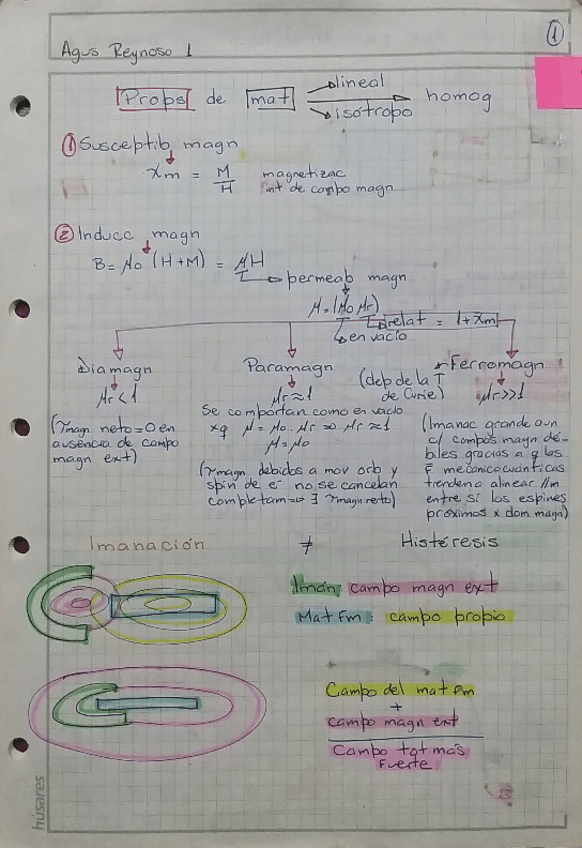 1
Agus Reynoso 1
Props de mat lineal
isótropo
homog
1 Susceptib magn
χm = M/H magnetizac
int de campo magn
2 Inducc magn
B = μ0 (H+M) = μH
permeab magn
μ = (μ0 μr)
relat = 1+χm
en vacío
Diamagn
μr < 1
(τmagn neto=0 en
ausencia de campo
magn ext)
Paramagn
μr ≈ 1
Se comportan como en vacío
xq μ = μ0 . μr ⇒ μr ≈ 1
μ = μ0
(τmagn debidos a mov orb y
spin de e⁻ no se cancelan
completam ⇒ ∃ τmagn neto)
(dep de la T
de Curie)
Ferromagn
μr >> 1
(Imanac grande aun
c/ campos magn dé-
biles gracias a q las
F mecánicocuánticas
tienden a alinear //m
entre sí los espines
próximos x dom magn)
Imanación ≠ Histéresis
Imán campo magn ext
Mat Fm: campo propio
Campo del mat Fm
+
campo magn ext
Campo tot más
Fuerte
húsares